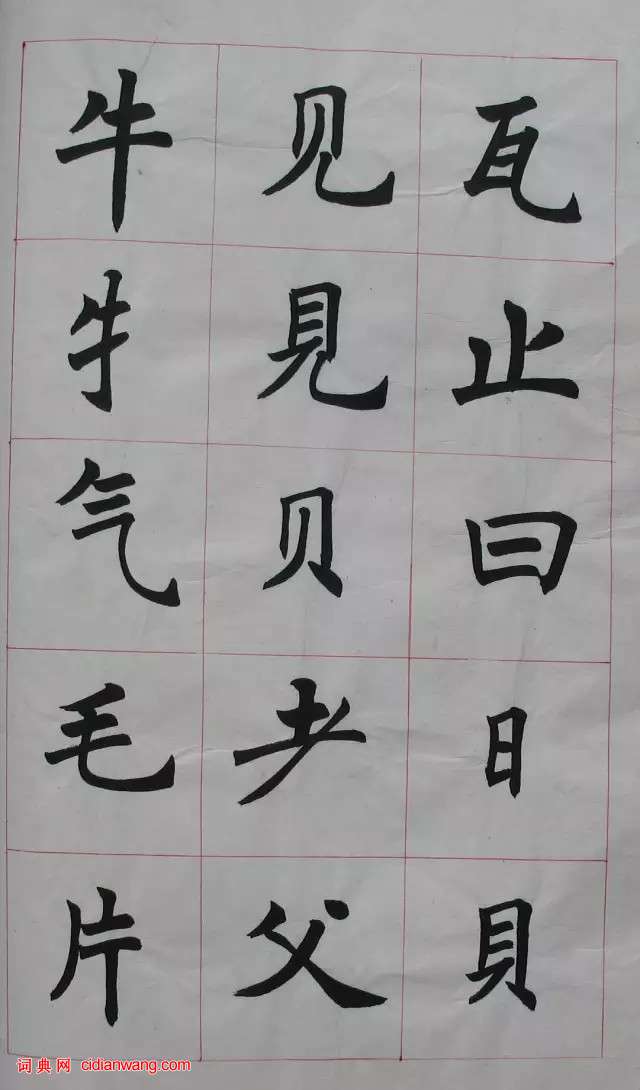 瓦止曰日貝
见見贝耂父
牛牜气毛片
词典网 cidianwang.com